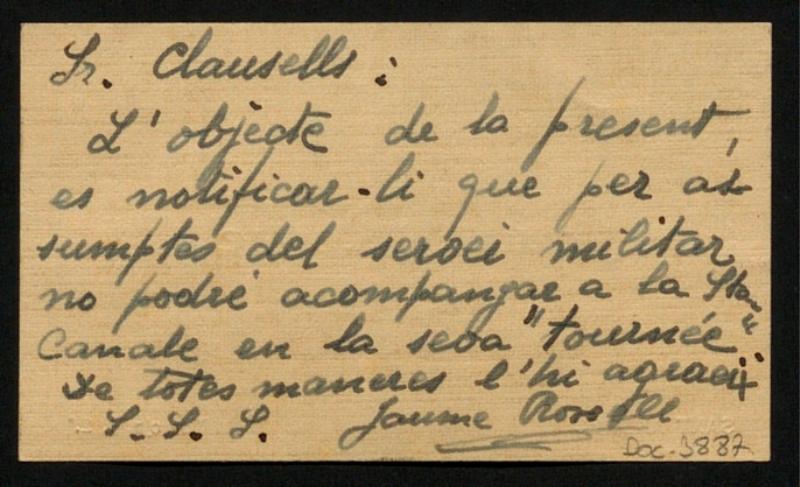 Sr. Clausells:
L'objecte de la present,
es notificar-li que per as-
sumptes del servei militar
no podré acompanyar a la Sta.
Canale en la seva "tournée".
De totes maneres l'hi agraeix
S. S. S. Jaume Rosell
Doc. 3887